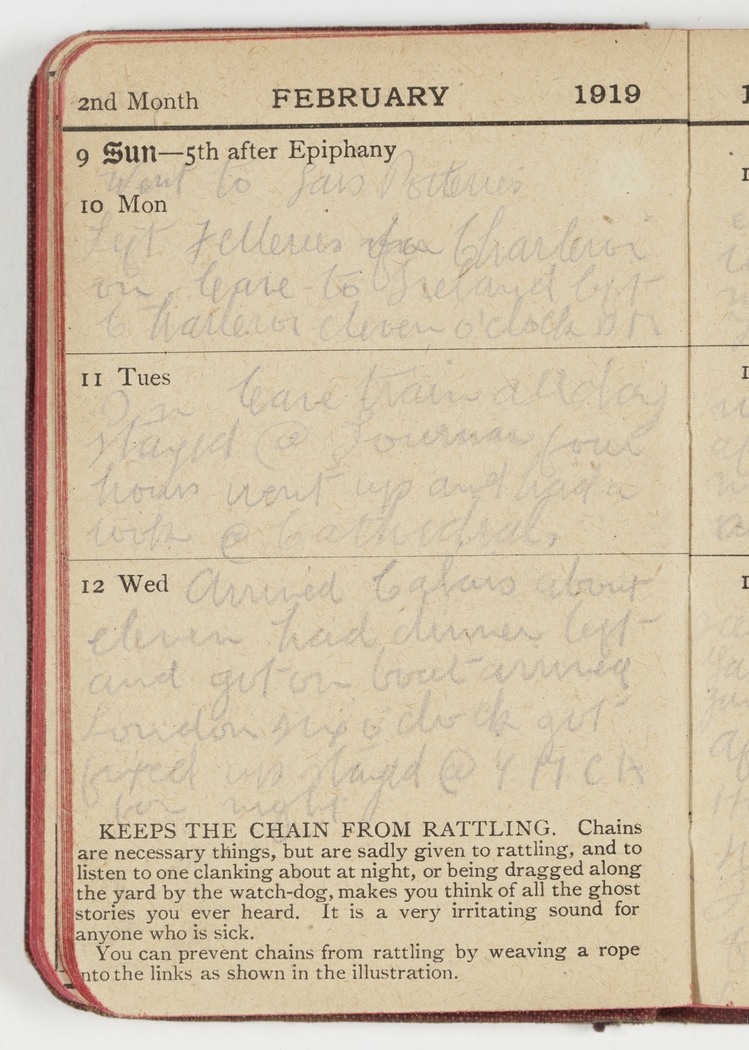 2nd Month FEBRUARY 1919
9 Sun—5th after Epiphany
Went to Sars Poteries
10 Mon
Left Felleries for Charleroi
on leave to Ireland left
Charleroi eleven o'clock
11 Tues
On leave train all day
stayed @ Tournai four
hours went up and had a
look @ Cathedral.
12 Wed Arrived Calais about
eleven had dinner left
and got on boat arrived
London six o'clock got
fixed up stayed @ YMCA
for night
KEEPS THE CHAIN FROM RATTLING. Chains
are necessary things, but are sadly given to rattling, and to
listen to one clanking about at night, or being dragged along
the yard by the watch-dog, makes you think of all the ghost
stories you ever heard. It is a very irritating sound for
anyone who is sick.
You can prevent chains from rattling by weaving a rope
nto the links as shown in the illustration.